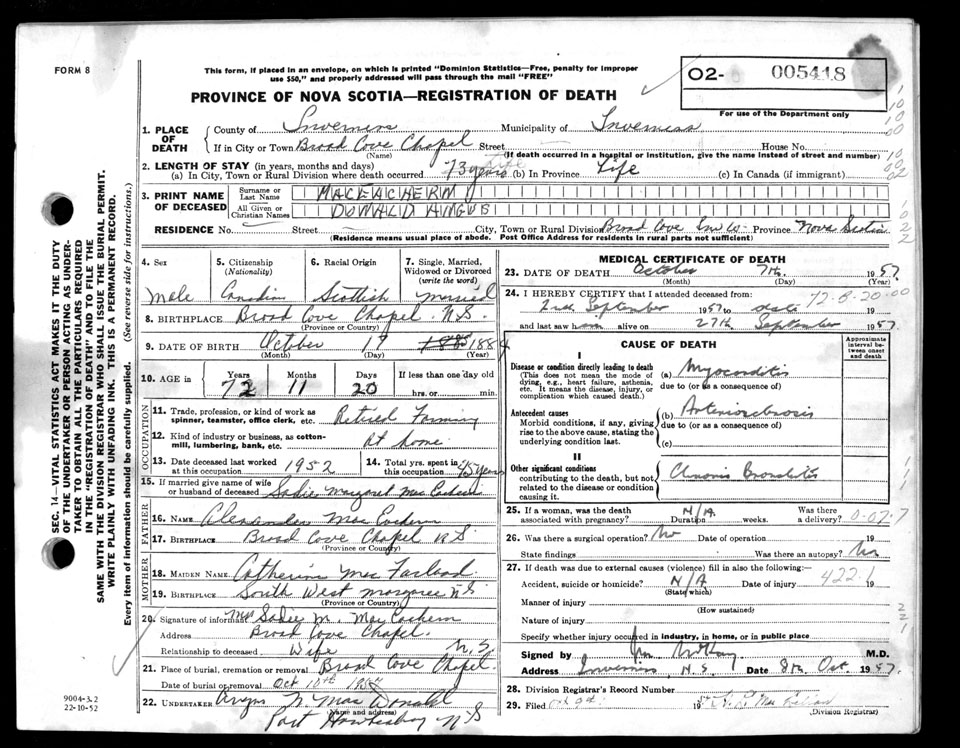 FORM 8
This form, if placed in an envelope, on which is printed "Dominion Statistics—Free, penalty for improper
use $50," and properly addressed will pass through the mail "FREE"
O2- 005418
For use of the Department only
PROVINCE OF NOVA SCOTIA—REGISTRATION OF DEATH
1. PLACE OF DEATH { County of Inverness Municipality of Inverness
If in City or Town Broad Cove Chapel Street House No.
(Name) (If death occurred in a hospital or institution, give the name instead of street and number)
2. LENGTH OF STAY (in years, months and days)
(a) In City, Town or Rural Division where death occurred 73 years (b) In Province Life (c) In Canada (if immigrant)
3. PRINT NAME OF DECEASED { Surname or Last Name MACEACHERN
All Given or Christian Names DONALD ANGUS
RESIDENCE No. Street City, Town or Rural Division Broad Cove Inv Co. Province Nova Scotia
(Residence means usual place of abode. Post Office Address for residents in rural parts not sufficient)
4. Sex Male
5. Citizenship (Nationality) Canadian
6. Racial Origin Scottish
7. Single, Married, Widowed or Divorced (write the word) Married
8. BIRTHPLACE Broad Cove Chapel N.S.
(Province or Country)
9. DATE OF BIRTH October 17 1884
(Month) (Day) (Year)
10. AGE in Years 72 Months 11 Days 20 If less than one day hrs. or min.
OCCUPATION
11. Trade, profession, or kind of work as spinner, teamster, office clerk, etc. Retired Farming
12. Kind of industry or business, as cotton-mill, lumbering, bank, etc. At home
13. Date deceased last worked at this occupation 1952
14. Total yrs. spent in this occupation 45 years
15. If married give name of wife or husband of deceased Sadie Margaret MacEachern
FATHER
16. NAME Alexander MacEachern
17. BIRTHPLACE Broad Cove Chapel N S
(Province or Country)
MOTHER
18. MAIDEN NAME Catherine MacFarland
19. BIRTHPLACE South West Margaree N S
(Province or Country)
20. Signature of informant Mrs Sadie M. MacEachern
Address Broad Cove Chapel.
Relationship to deceased Wife N.S
21. Place of burial, cremation or removal Broad Cove Chapel
Date of burial or removal Oct 10th 1957
22. UNDERTAKER Angus N. MacDonald
(Name and address)
Port Hawkesbury N S
MEDICAL CERTIFICATE OF DEATH
23. DATE OF DEATH October 7th, 1957.
(Month) (Day)
24. I HEREBY CERTIFY that I attended deceased from: 72-8-20-00
September 1957 to date
and last saw h alive on 27th September 1957.
CAUSE OF DEATH
Approximate interval between onset and death
I
Disease or condition directly leading to death
(This does not mean the mode of dying, e.g., heart failure, asthenia, etc. It means the disease, injury, or complication which caused death.)
(a) Myocarditis
due to (or as a consequence of)
Antecedent causes
Morbid conditions, if any, giving rise to the above cause, stating the underlying condition last.
(b) Arteriosclerosis
due to (or as a consequence of)
(c)
II
Other significant conditions
contributing to the death, but not related to the disease or condition causing it.
Chronic Bronchitis
25. If a woman, was the death associated with pregnancy? N/A Duration weeks. Was there a delivery? 0-07-7
26. Was there a surgical operation? No Date of operation 19
State findings Was there an autopsy? No
27. If death was due to external causes (violence) fill in also the following:
Accident, suicide or homicide? N/A Date of injury 19
(State which) 422.1
Manner of injury
(How sustained)
Nature of injury
Specify whether injury occurred in industry, in home, or in public place
Signed by M.D.
Address Inverness N.S. Date 8th Oct. 1957.
28. Division Registrar's Record Number
29. Filed 19
(Division Registrar)
SEC. 14—VITAL STATISTICS ACT MAKES IT THE DUTY
OF THE UNDERTAKER OR PERSON ACTING AS UNDER-
TAKER TO OBTAIN ALL THE PARTICULARS REQUIRED
IN THE "REGISTRATION OF DEATH" AND TO FILE THE
SAME WITH THE DIVISION REGISTRAR WHO SHALL ISSUE THE BURIAL PERMIT.
WRITE PLAINLY WITH UNFADING INK. THIS IS A PERMANENT RECORD.
Every item of information should be carefully supplied. (See reverse side for instructions.)
9004-3.2
22-10-52